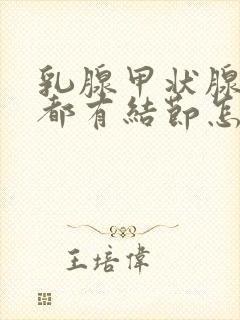 乳腺甲状腺
都有結節怎
王培偉